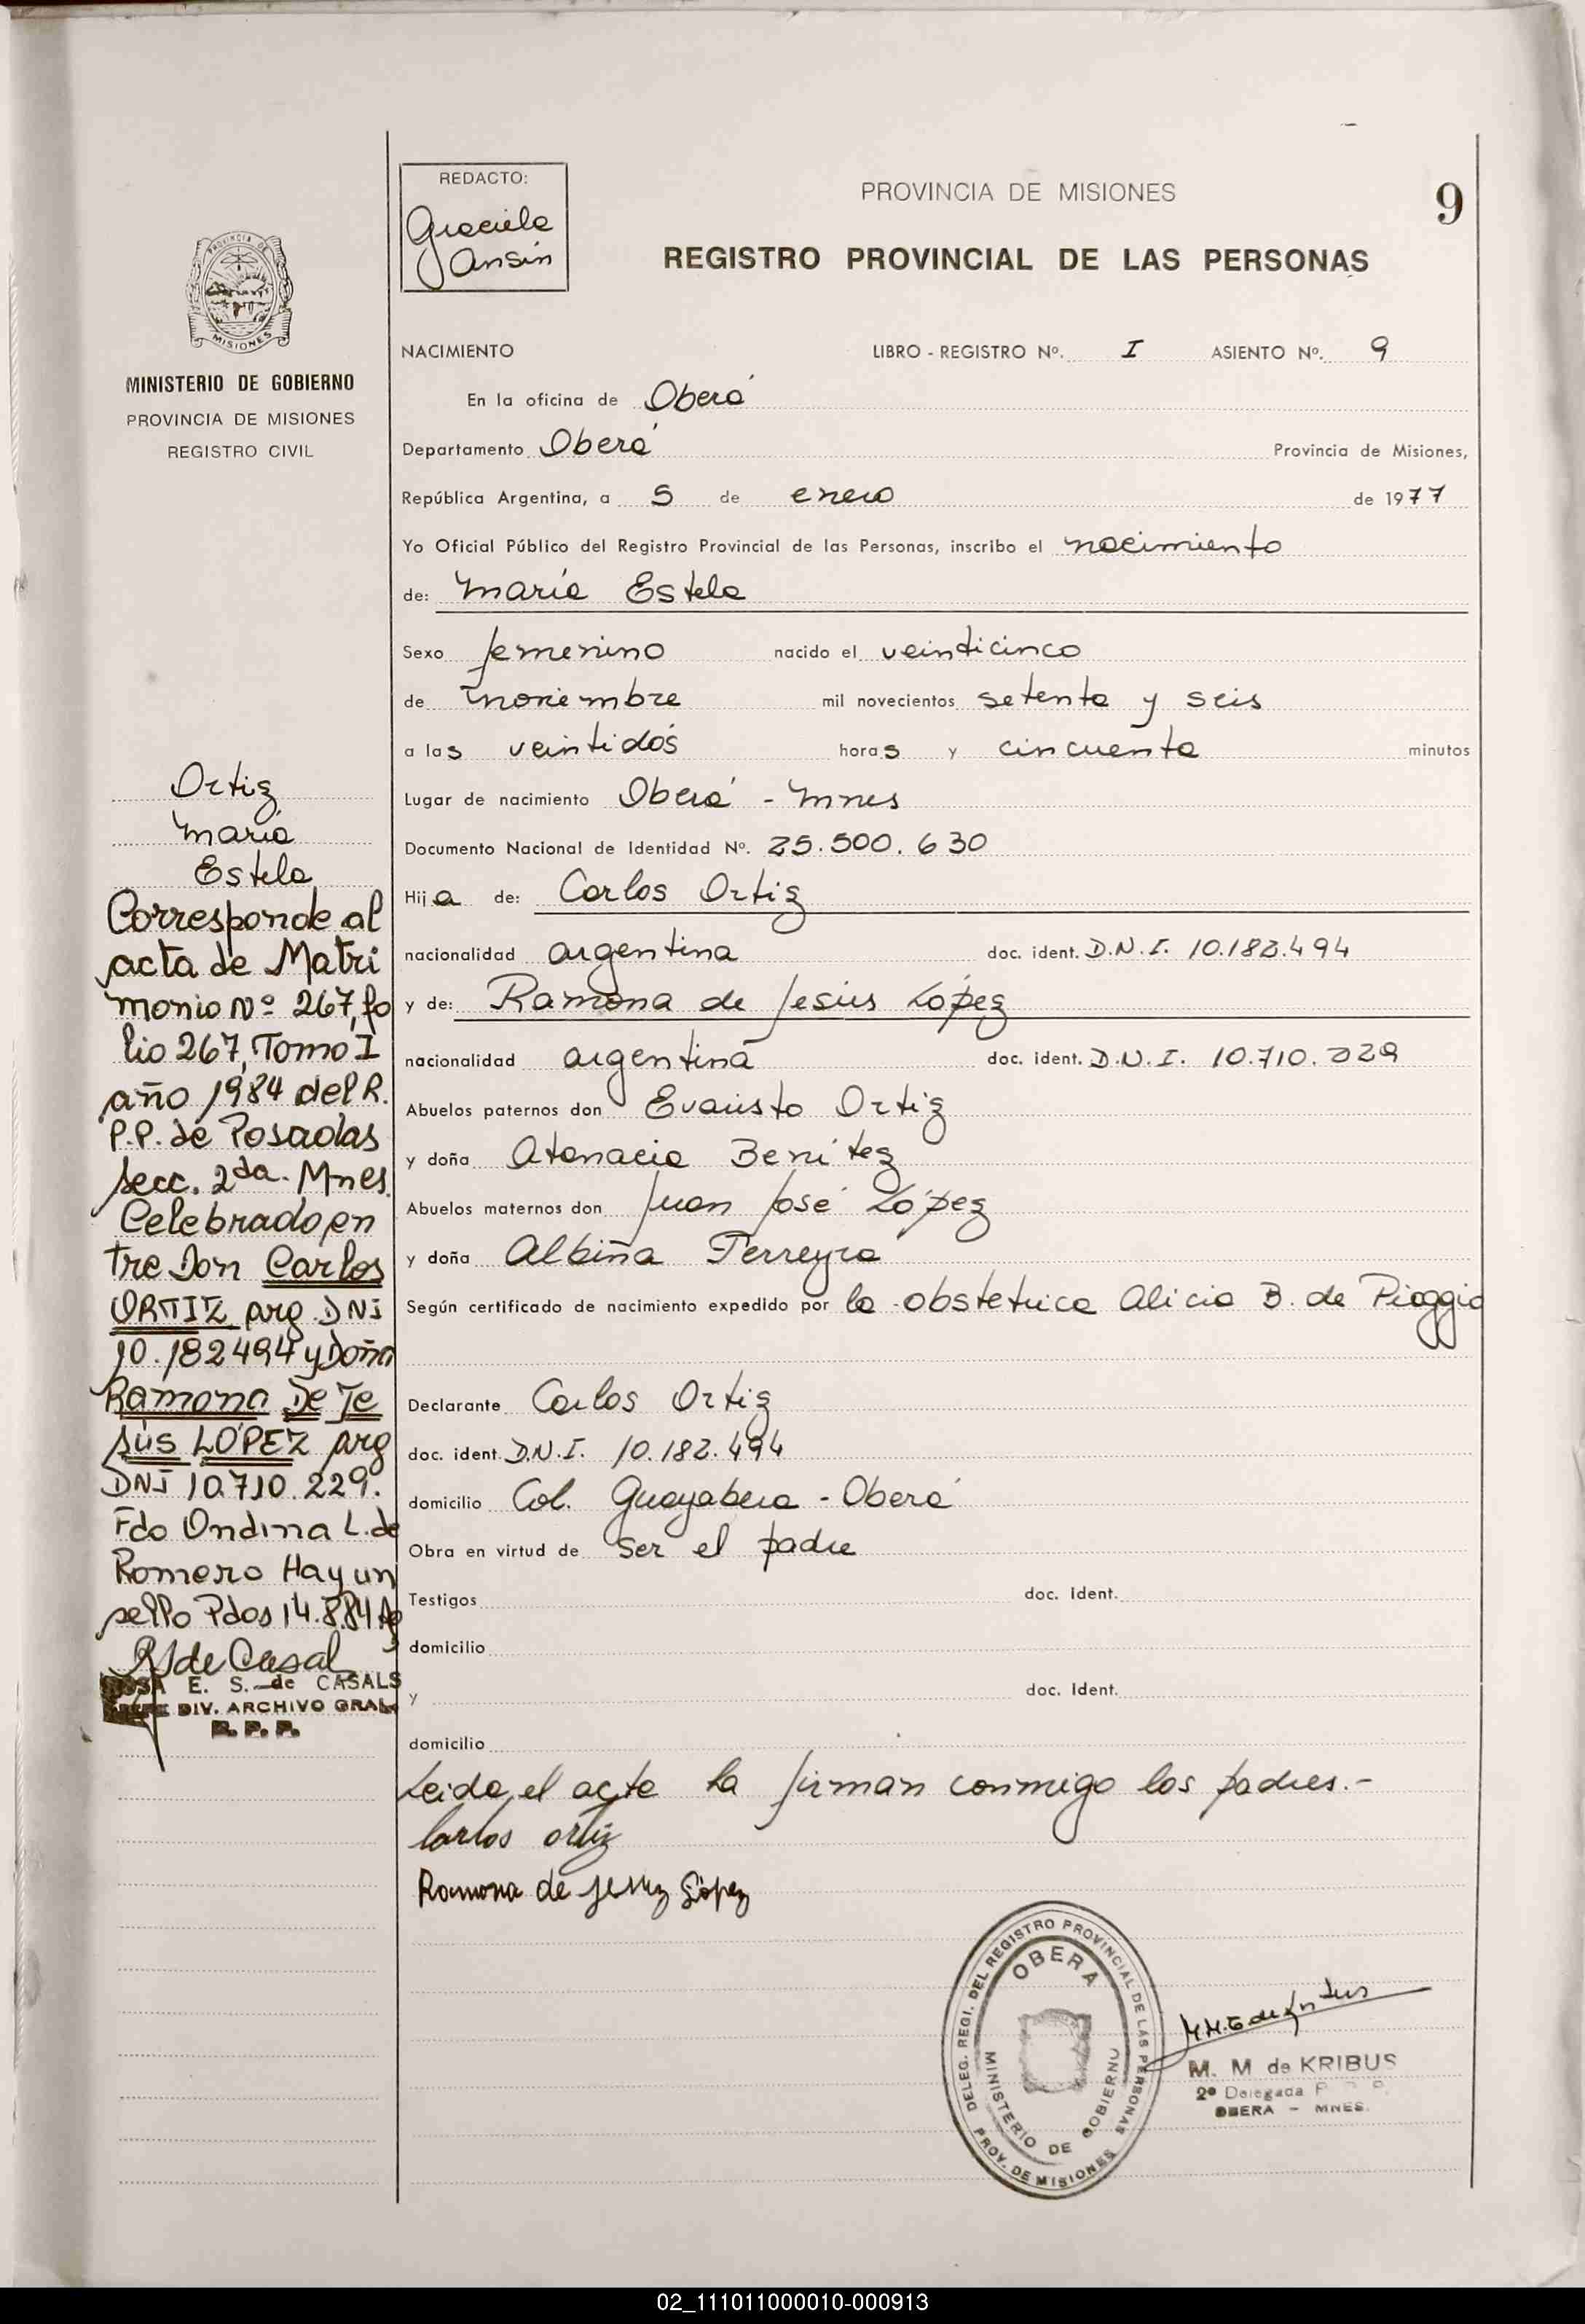 REDACTO:
Graciela
Ansin
PROVINCIA DE MISIONES
9
REGISTRO PROVINCIAL DE LAS PERSONAS
PROVINCIA DE
MISIONES
MINISTERIO DE GOBIERNO
PROVINCIA DE MISIONES
REGISTRO CIVIL
NACIMIENTO LIBRO - REGISTRO Nº. I ASIENTO Nº. 9
En la oficina de Oberá
Departamento Oberá Provincia de Misiones,
República Argentina, a 5 de enero de 1977
Yo Oficial Público del Registro Provincial de las Personas, inscribo el nacimiento
de: María Estela
Sexo femenino nacido el veinticinco
de noviembre mil novecientos setenta y seis
a las veintidós horas y cincuenta minutos
Lugar de nacimiento Oberá - Mnes
Documento Nacional de Identidad Nº. 25.500.630
Hija de: Carlos Ortiz
nacionalidad argentina doc. ident. D.N.I. 10.182.494
y de: Ramona de Jesús López
nacionalidad argentina doc. ident. D.N.I. 10.710.229
Abuelos paternos don Evaristo Ortiz
y doña Atanacia Benitez
Abuelos maternos don Juan José López
y doña Albina Ferreyra
Según certificado de nacimiento expedido por la obstetrica Alicia B. de Pioggio
Declarante Carlos Ortiz
doc. ident. D.N.I. 10.182.494
domicilio Col. Guayabera - Oberá
Obra en virtud de ser el padre
Testigos doc. Ident.
domicilio
y doc. Ident.
domicilio
Leida el acta la firman conmigo los padres.-
Carlos ortiz
Ramona de Jesuz López
Ortiz
María
Estela
Corresponde al
acta de Matri
monio Nº 267, fo
lio 267, Tomo I
año 1984 del R.
P.P. de Posadas
secc. 2da. Mnes.
Celebrado en
tre Don Carlos
ORTIZ arg. DNI
10.182494 y Doña
Ramona De Je
sús LÓPEZ arg
DNI 10.710.229.
Fdo Ondina L. de
Romero Hay un
sello Pdos 14.8.84
R S de Casal
ROSA E. S. de CASALS
JEFE DIV. ARCHIVO GRAL.
R. P. P.
DELEG. REGI. DEL REGISTRO PROVINCIAL DE LAS PERSONAS
PROV. DE MISIONES
OBERA
MINISTERIO DE GOBIERNO
M. M de KRIBUS
2º Delegada
OBERA - MNES.
02_111011000010-000913